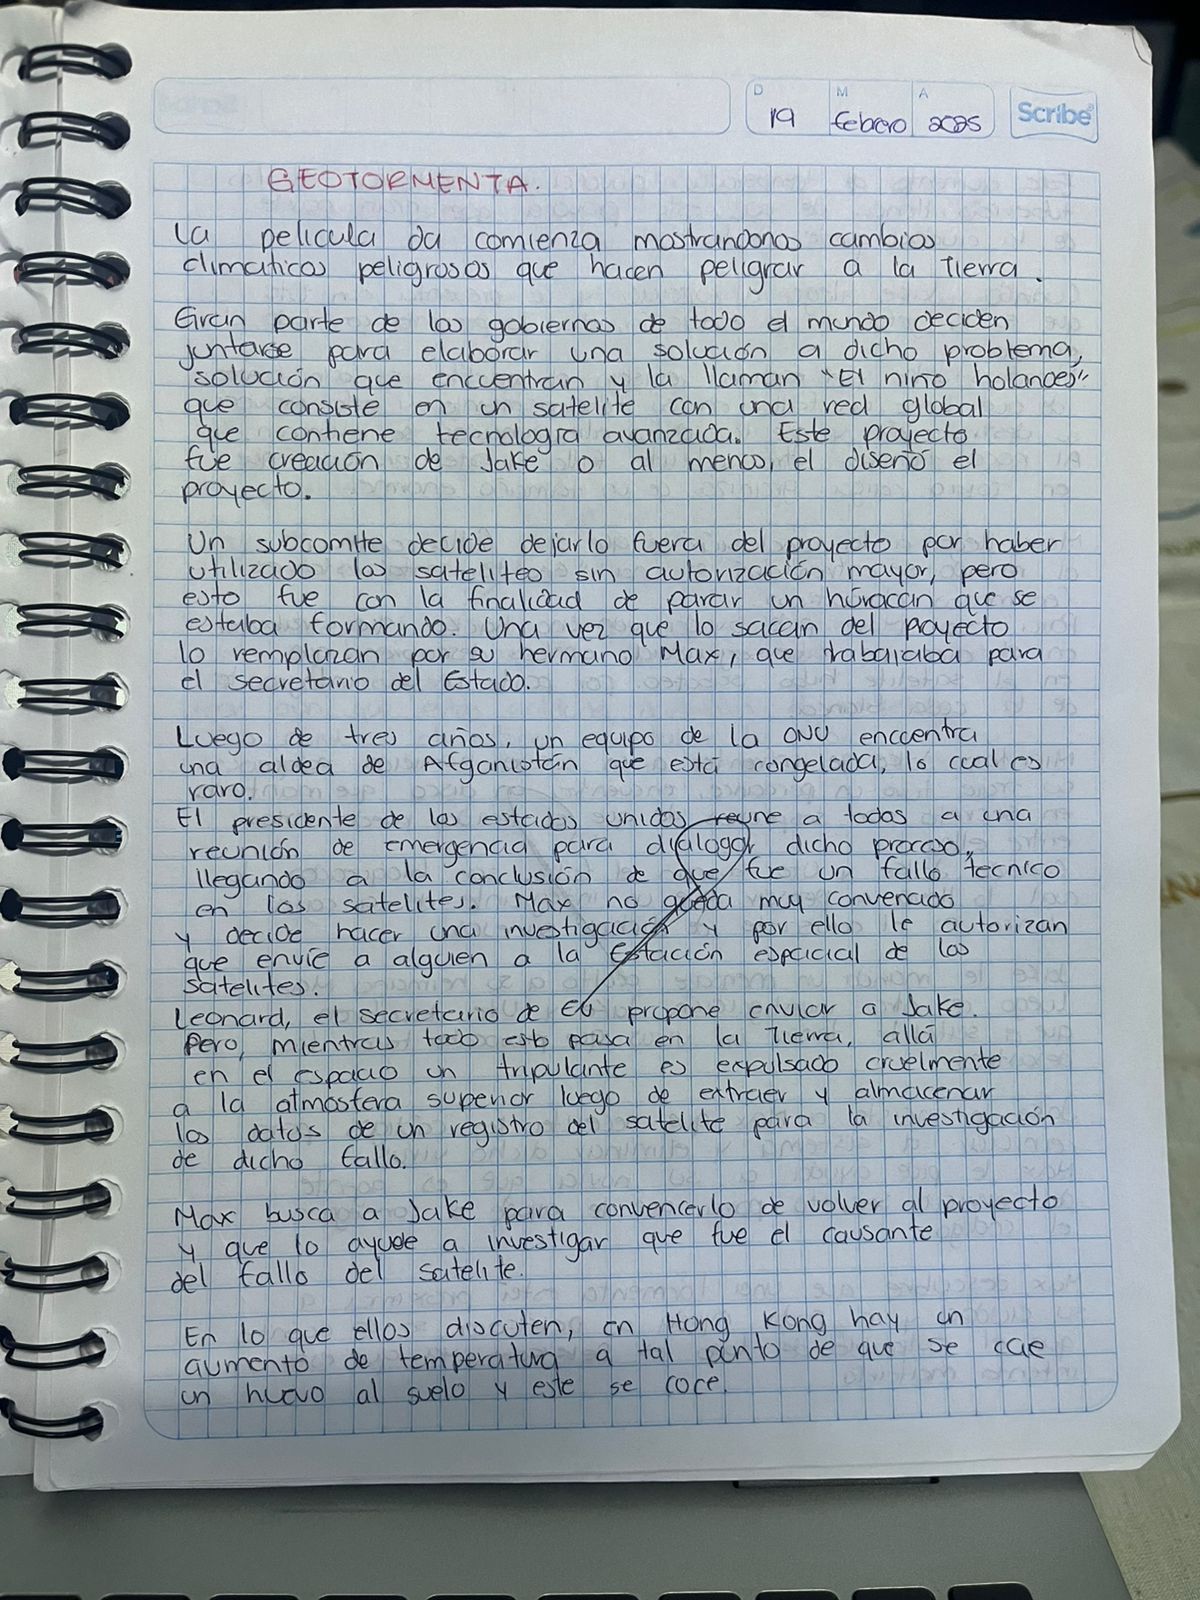 D M A
19 febero 2025
Scribe
GEOTORMENTA.
La película da comienza mostrandonos cambios
climaticos peligrosos que hacen peligrar a la Tierra.
Gran parte de los gobiernos de todo el mundo deciden
juntarse para elaborar una solución a dicho problema,
solución que encuentran y la llaman "El niño holandes"
que consiste en un satelite con una red global
que contiene tecnología avanzada. Este proyecto
fue creación de Jake o al menos, el diseñó el
proyecto.
Un subcomite decide dejarlo fuera del proyecto por haber
utilizado los satelites sin autorización mayor, pero
esto fue con la finalidad de parar un huracán que se
estaba formando. Una vez que lo sacan del proyecto
lo remplazan por su hermano Max, que trabajaba para
el secretario del Estado.
Luego de tres años, un equipo de la ONU encuentra
una aldea de Afganistán que está congelada, lo cual es
raro.
El presidente de los estados unidos reune a todos a una
reunión de emergencia para dialogar dicho proceso,
llegando a la conclusión de que fue un fallo tecnico
en los satelites. Max no queda muy convencido
y decide hacer una investigación y por ello le autorizan
que envíe a alguien a la Estación espacial de los
satelites.
Leonard, el secretario de EU propone enviar a Jake.
Pero, mientras todo esto pasa en la Tierra, allá
en el espacio un tripulante es expulsado cruelmente
a la atmosfera superior luego de extraer y almacenar
los datos de un registro del satelite para la investigación
de dicho fallo.
Max busca a Jake para convencerlo de volver al proyecto
y que lo ayude a investigar que fue el causante
del fallo del satelite.
En lo que ellos discuten, en Hong Kong hay un
aumento de temperatura a tal punto de que se cae
un huevo al suelo y este se coce.